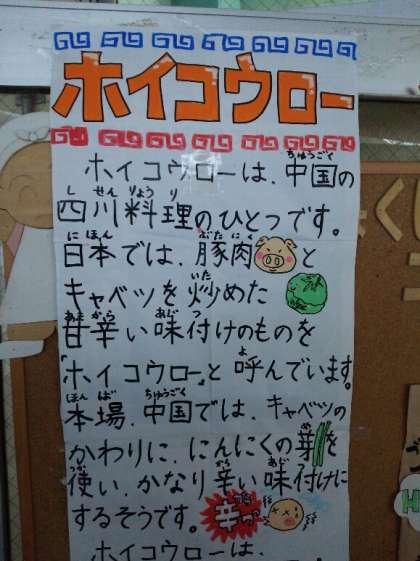 ホイコウロー
ホイコウローは、中国の
四川料理のひとつです。
日本では、豚肉と
キャベツを炒めた
甘辛い味付けのものを
「ホイコウロー」と呼んでいます。
本場、中国では、キャベツの
かわりに、にんにくの芽を
使い、かなり辛い味付けに
するそうです。
ホイコウローは、